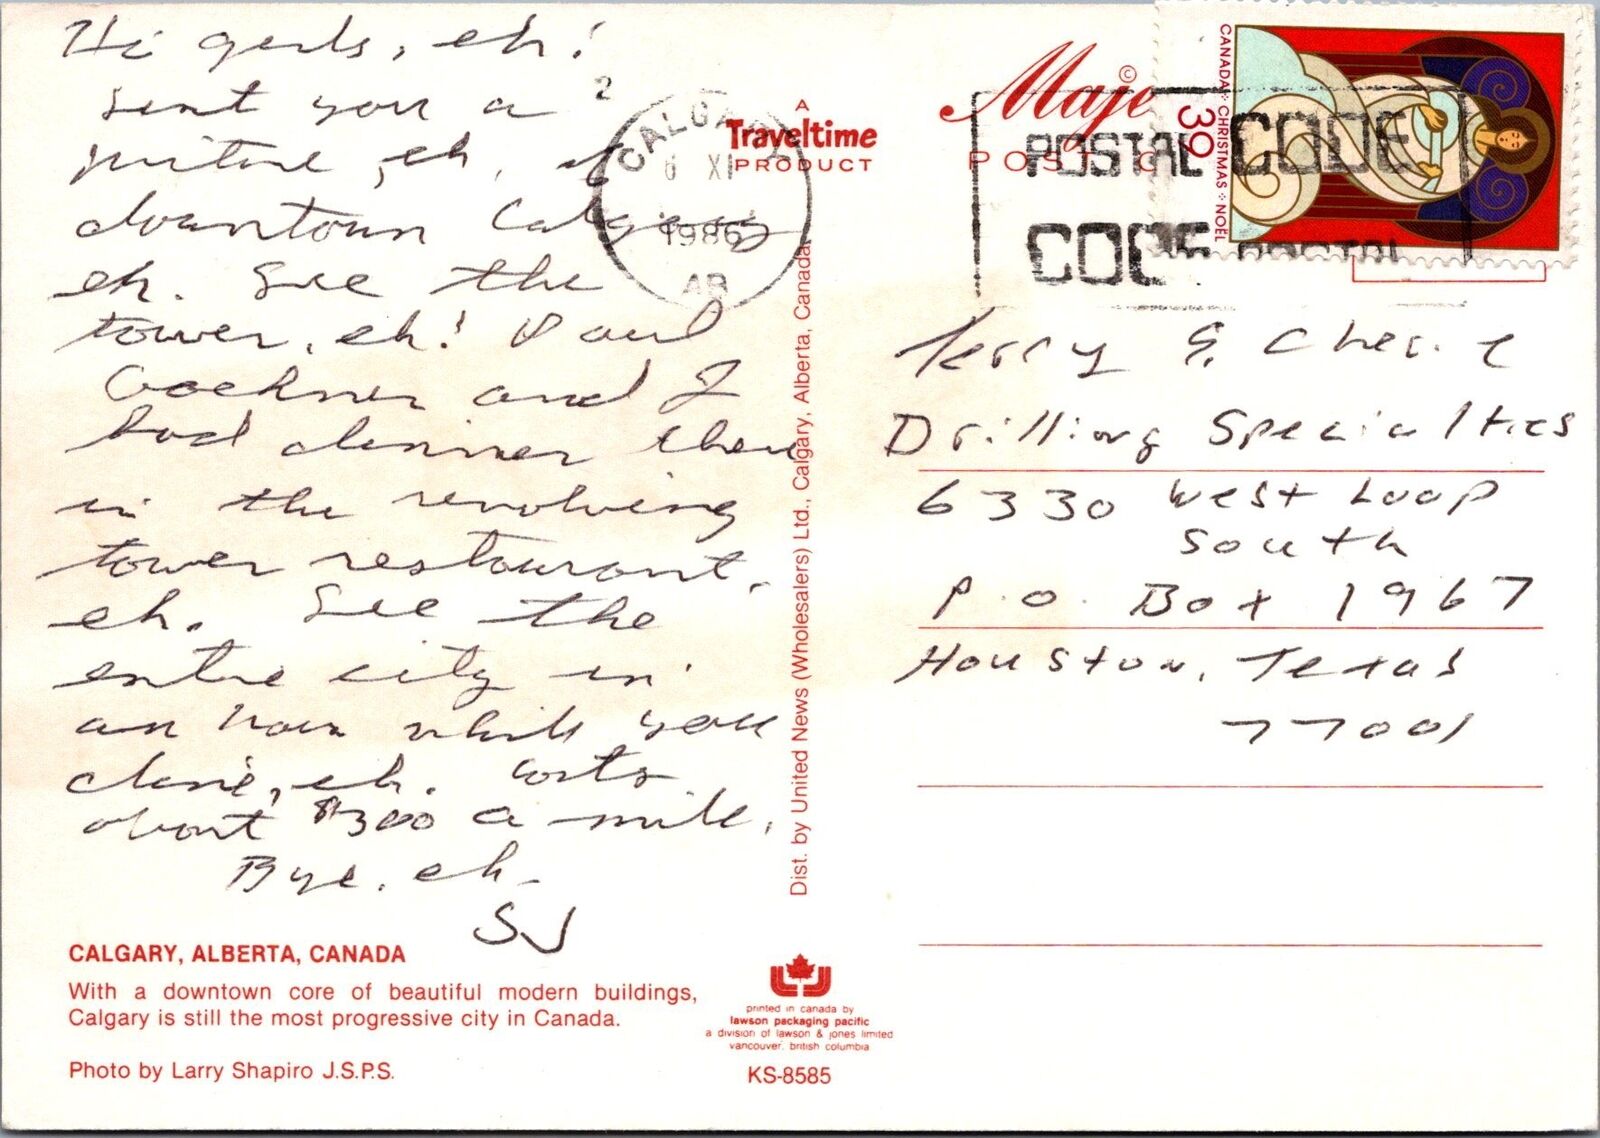 Hi girls, eh!
Sent you a
picture, eh, of
downtown Calgary
eh. See the
tower, eh! Paul
and I
had dinner there
in the revolving
tower restaurant,
eh. See the
entire city in
an hour while you
dine, eh. Costs
about $300 a mile.
Bye, eh.
SJ
CALGARY, ALBERTA, CANADA
With a downtown core of beautiful modern buildings,
Calgary is still the most progressive city in Canada.
Photo by Larry Shapiro J.S.P.S.
2
CALGARY
XI
1986
AB
A
Traveltime
PRODUCT
Dist. by United News (Wholesalers) Ltd., Calgary, Alberta, Canada
printed in canada by
lawson packaging pacific
a division of lawson & jones limited
vancouver, british columbia
KS-8585
©
Maje
POST
POSTAL CODE
CODE POSTAL
CANADA · CHRISTMAS · NOËL
39
Terry & Cherie
Drilling Specialties
6330 West Loop
South
P.O. Box 1967
Houston, Texas
77001